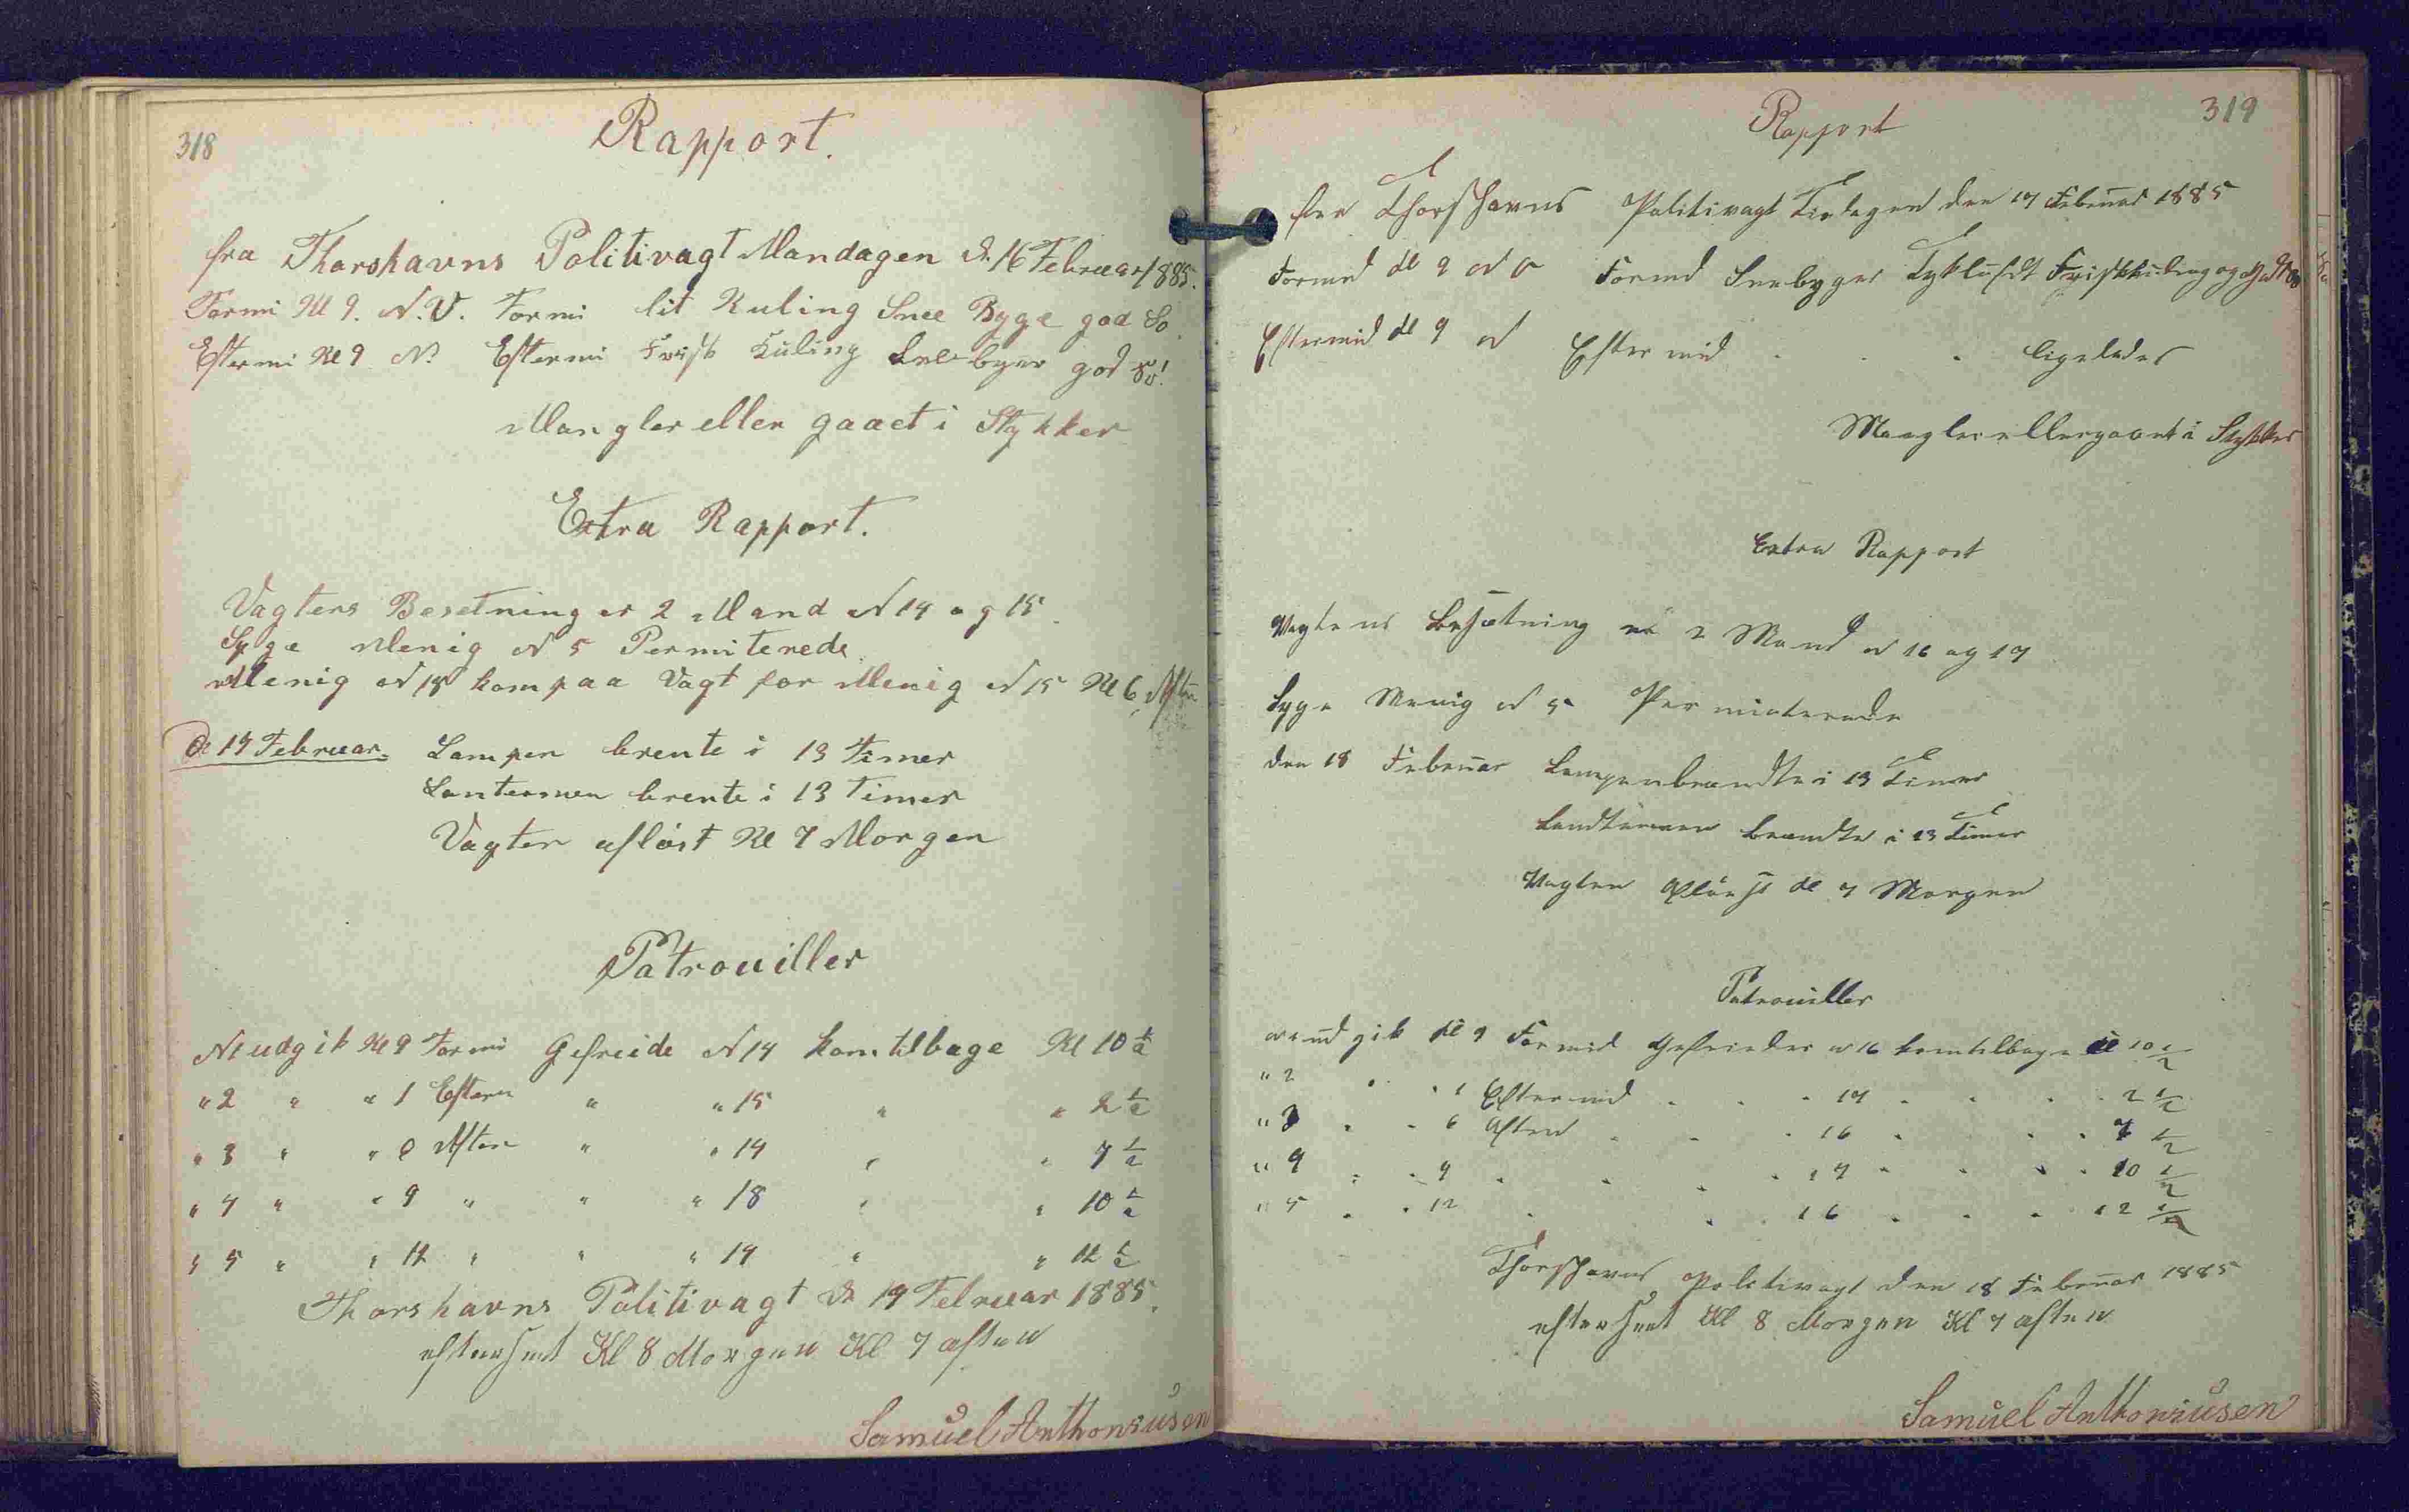 318
Rapport.
fra Thorshavns Politivagt Mandagen d. 16 Februar 1885.
Formi Kl 9. N.V. Formi lit Kuling Snee Byge god So
Eftermi Kl 9 N. Eftermi Frisk Kuling Sneebyer god So!
Mangler eller gaaet i Stykker
Extra Rapport.
Vagtens Besetning er 2 Mand N 14 og 15
Syge Menig N 5 Permiterede
Menig N 18 kom paa Vagt for Menig N 15 Kl 6 Aften
D. 17 Februar. Lampen brente i 13 Timer
Lanternen brente i 13 Timer
Vagten afløst Kl 7 Morgen
Patrouiller
N 1 udgik Kl 9 Formi Gefreide N 14 kom tilbage Kl 10 1/2
" 2 " " 1 Efterm " " 15 " " 2 1/2
" 3 " " 6 Aften " " 14 " " 7 1/2
" 4 " " 9 " " " 18 " " 10 1/2
" 5 " " 12 " " " 14 " " 12 1/2
Thorshavns Politivagt D. 17 Februar 1885.
efterseet Kl 8 Morgen Kl 7 aften
Samuel Anthoniusen
319
Rapport
fra Thorshavns Politivagt Tirdagen den 17 Februar 1885
Formd Kl 9 N O Formd Sneebyger Tykluft Friskkuling og
Eftermid Kl 9 N Efter mid . . . ligeledes
Mangler eller gaaet i Stykker
Extra Rapport
Vagtens Besætning er 2 Mand N 16 og 17
Syge Menig N 5 Permiterede
den 18 Februar Lampen brændte i 13 Timer
Landternen brændte i 13 Timer
Vagten afløst Kl 7 Morgen
Patrouiller
N 1 udgik Kl 9 Formid Gefreider N 16 kom tilbage Kl 10 1/2
" 2 . . 1 Eftermid . . . 17 . . . . 2 1/2
" 3 . . 6 Aften . . . 16 . . . 7 1/2
" 4 . . 9 . . . . 17 . . . . 10 1/2
" 5 . . 12 . . . 16 . . . 12 1/2
Thorshavns Politivagt den 18 Februar 1885
efterseet Kl 8 Morgen Kl 7 aften
Samuel Anthoniusen